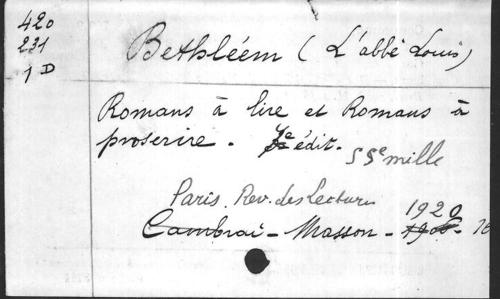 420
231
1 D
Bethléem (L'abbé Louis)
Romans à lire et Romans à
proscrire. 7e édit. 55e mille
Paris. Rev. des Lectures
1920
Cambrai - Masson -